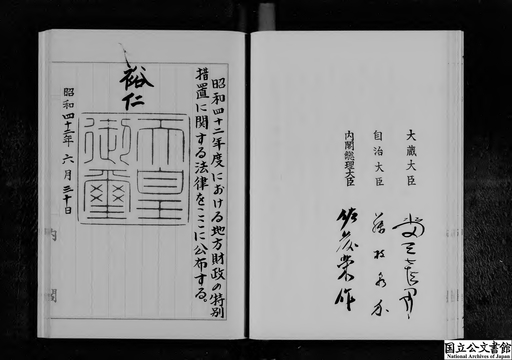 昭和四十二年度における地方財政の特別
措置に関する法律をここに公布する。
裕仁
天皇
御璽
昭和四十二年六月三十日
内閣
内閣総理大臣 佐藤榮作
自治大臣 藤枝泉介
大蔵大臣
国立公文書館
National Archives of Japan